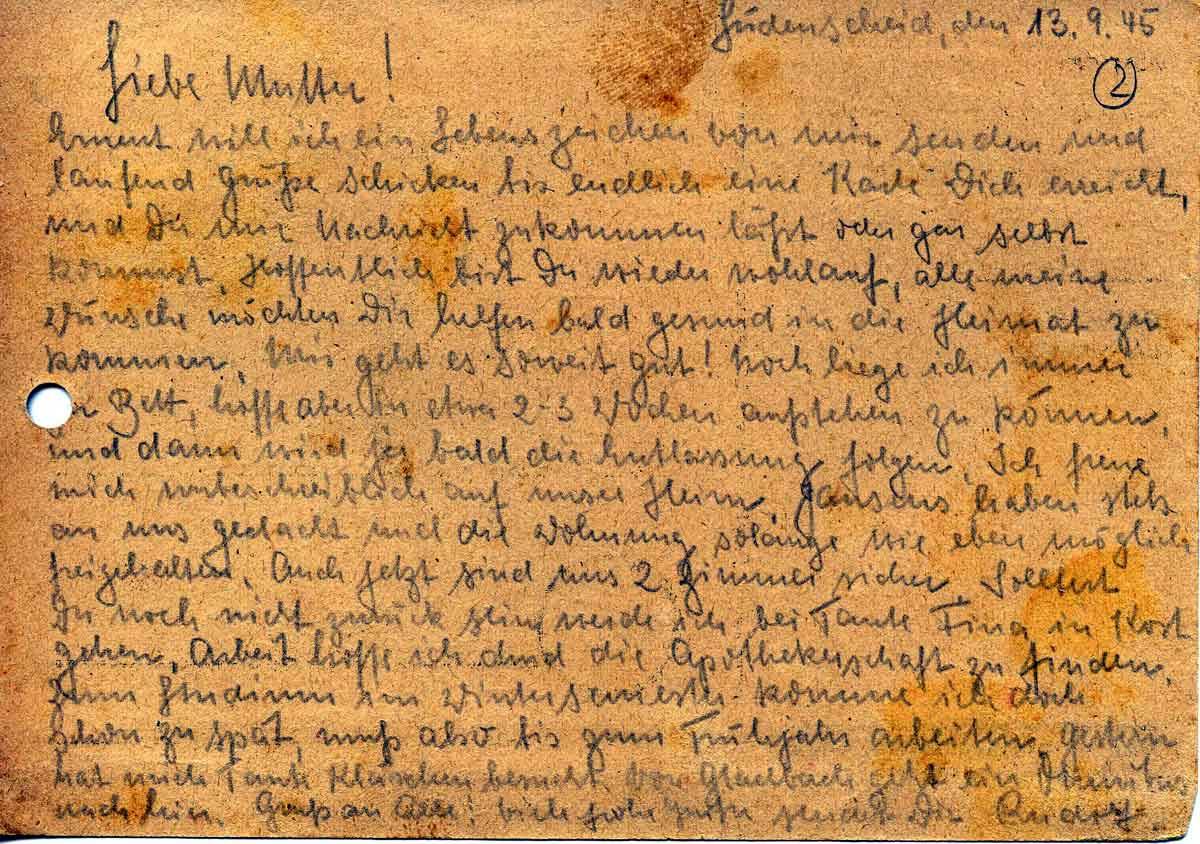 Lüdenscheid, den 13.9.45
②
Liebe Mutter!
Erneut will ich ein Lebenszeichen von mir senden und
laufend Grüße schicken bis endlich eine Karte Dich erreicht,
und Du mir Nachricht zukommen läßt oder gar selbst
kommst. Hoffentlich bist Du wieder wohlauf, alle meine
Wünsche möchten Dir helfen bald gesund in die Heimat zu
kommen. Mir geht es soweit gut! Noch liege ich immer
im Bett, hoffe aber in etwa 2-3 Wochen aufstehen zu können,
und dann wird ja bald die Entlassung folgen. Ich freue
mich unbeschreiblich auf unser Heim. Jansens haben stets
an uns gedacht und die Wohnung solange wie eben möglich
freigehalten. Auch jetzt sind uns 2 Zimmer sicher. Solltest
Du noch nicht zurück sein, werde ich bei Tante Fina in Kost
gehen. Arbeit hoffe ich durch die Apothekerschaft zu finden.
Zum Studium im Wintersemester komme ich doch
schon zu spät, muß also bis zum Frühjahr arbeiten. Gestern
hat mich Tante Klärchen besucht. Von Gladbach geht ein Omnibus
nach hier. Gruß an Alle! Viele frohe Grüße sendet Dir Rudolf.